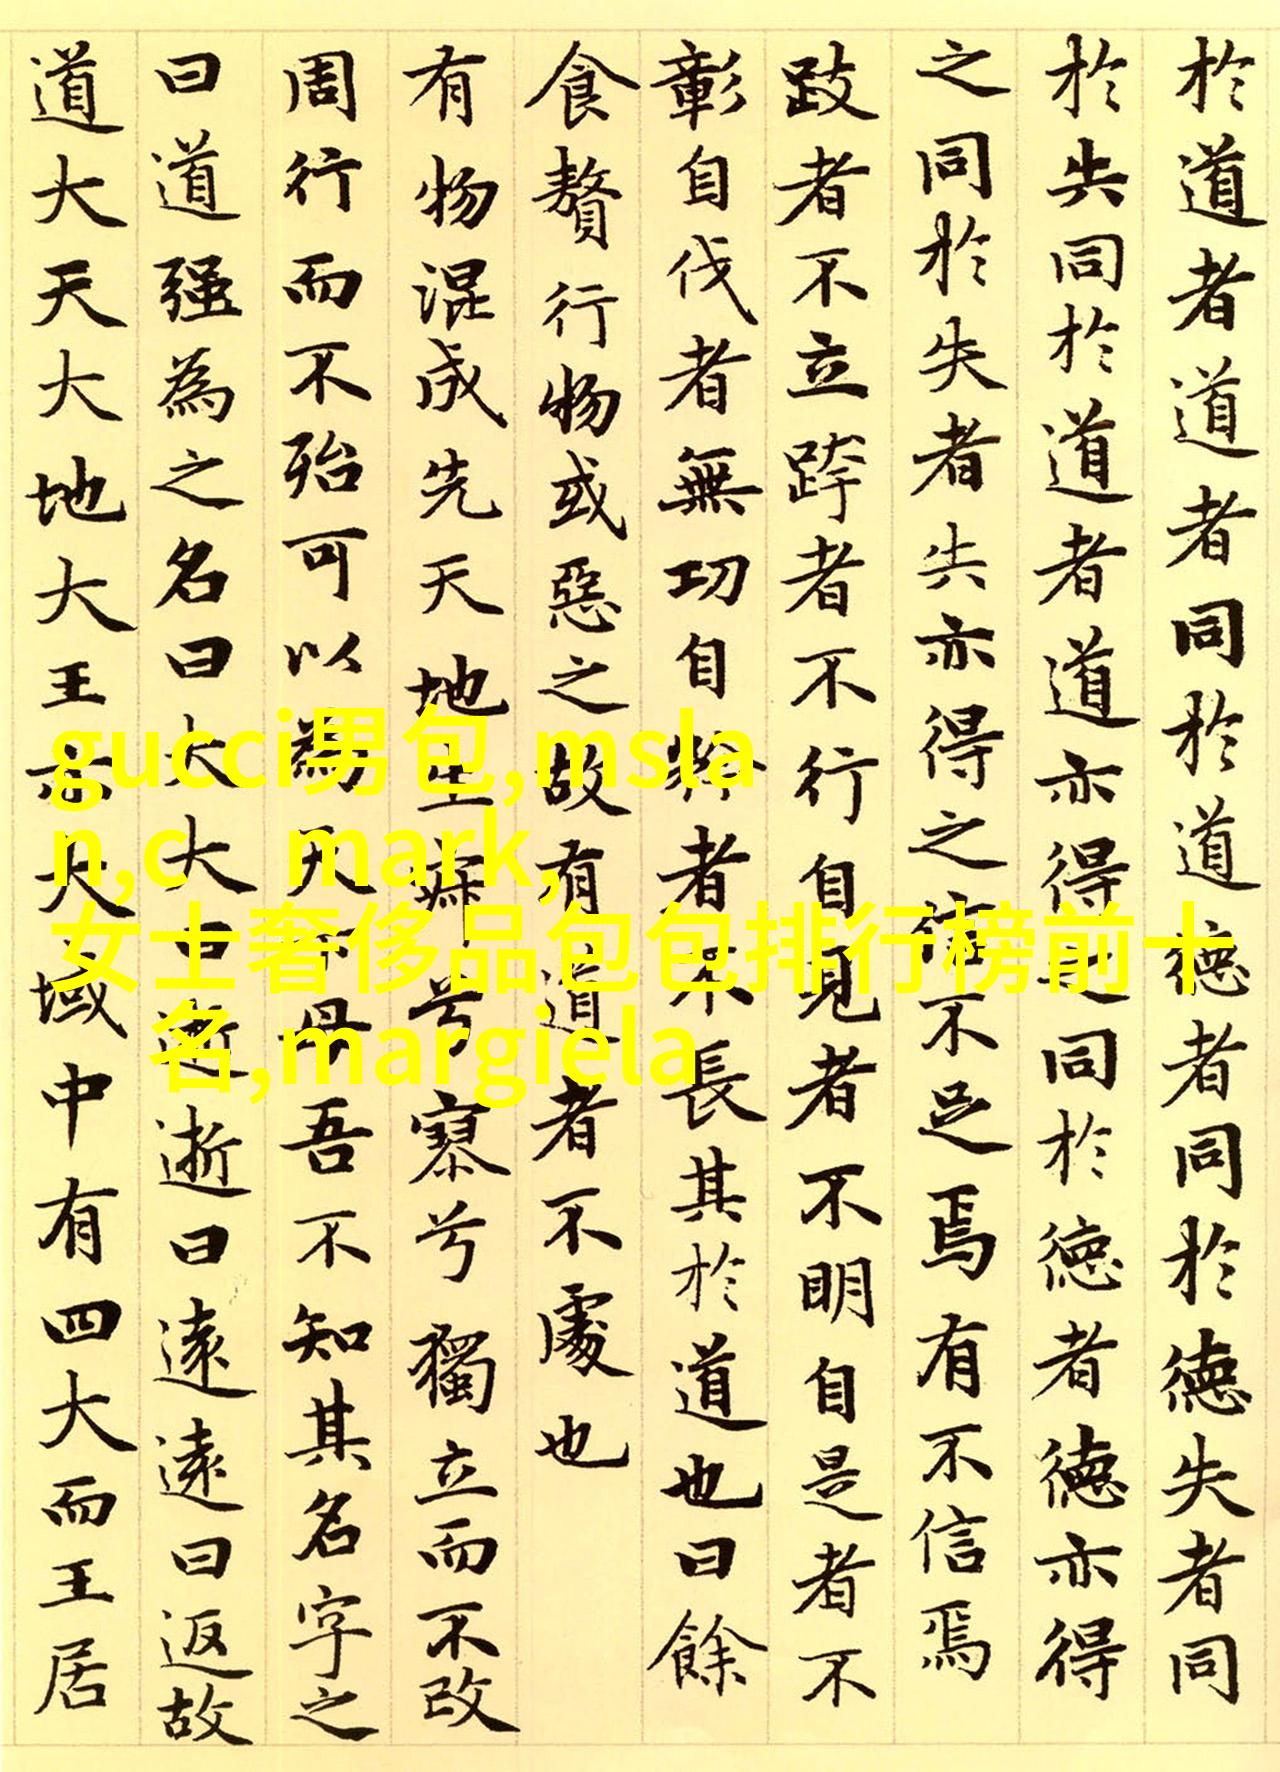 於道者道者同於道德者同於德失者同
於失同於道者道亦得之同於德者德亦得
之同於失者失亦得之信不足焉有不信焉
跂者不立跨者不行自見者不明自是者不
彰自伐者無功自矜者不長其於道也曰餘
食贅行物或惡之故有道者不處也
有物混成先天地生寂兮寥兮獨立而不改
周行而不殆可以為天下母吾不知其名字之
曰道强為之名曰大大曰逝逝曰遠遠曰返故
道大天大地大王亦大域中有四大而王居
gucci男包,msla
n,c mark,
女士奢侈品包包排行榜前十
名,margiela